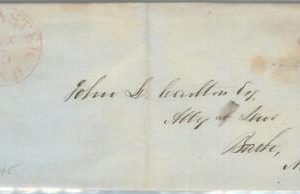 John L. Carlton Esq
Atty at Law
Bath,
N
45